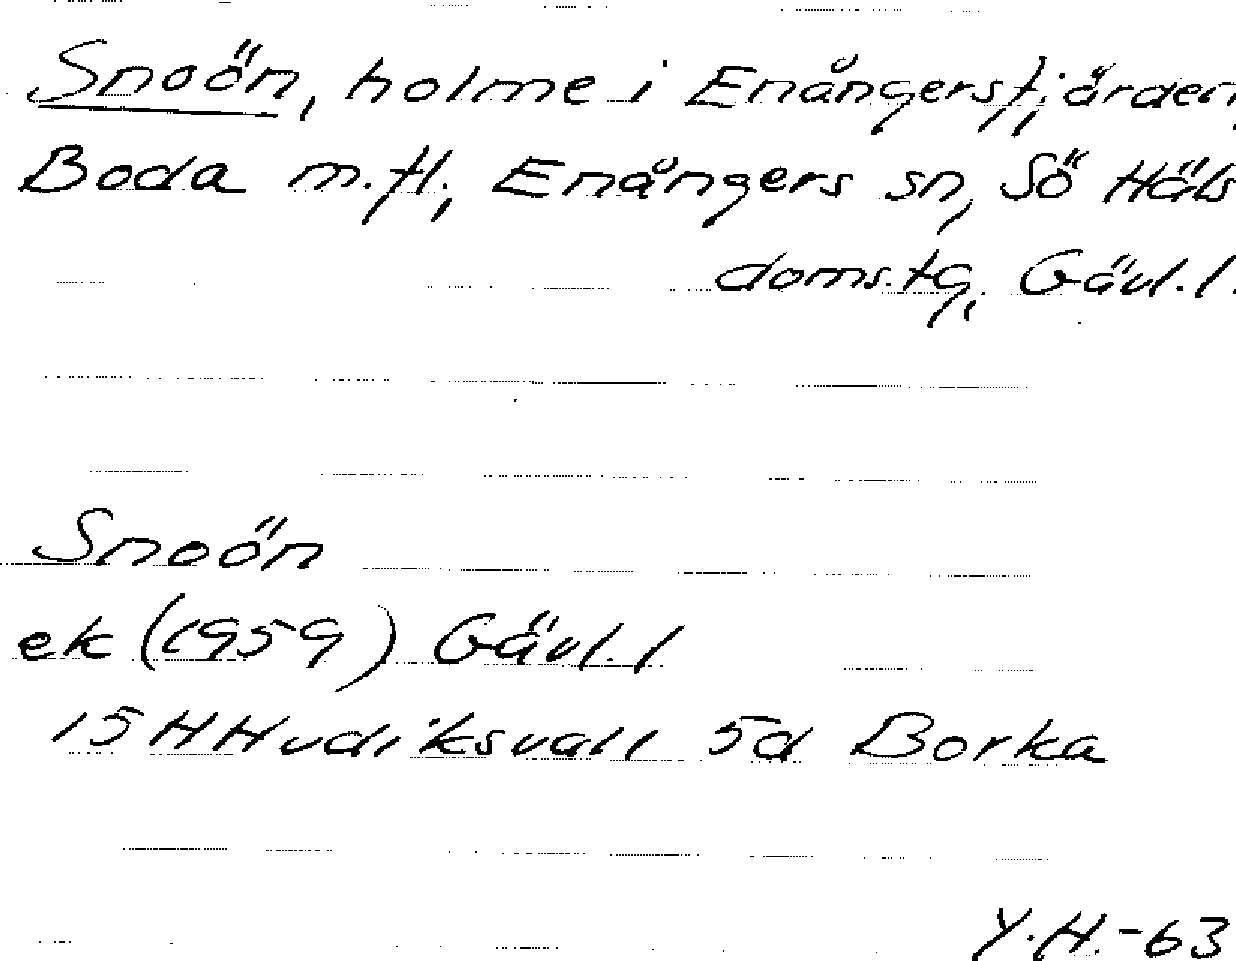 Snoön, holme i Enångersfjärden,
Boda m.fl., Enångers sn, Sö Häls
domstg, Gävl.l.
Snoön
ek (1959) Gävl.l
15H Hudiksvall 5d Borka
Y.H.-63